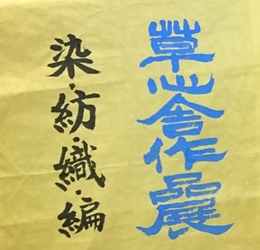 草心舎作品展
染・紡織・編